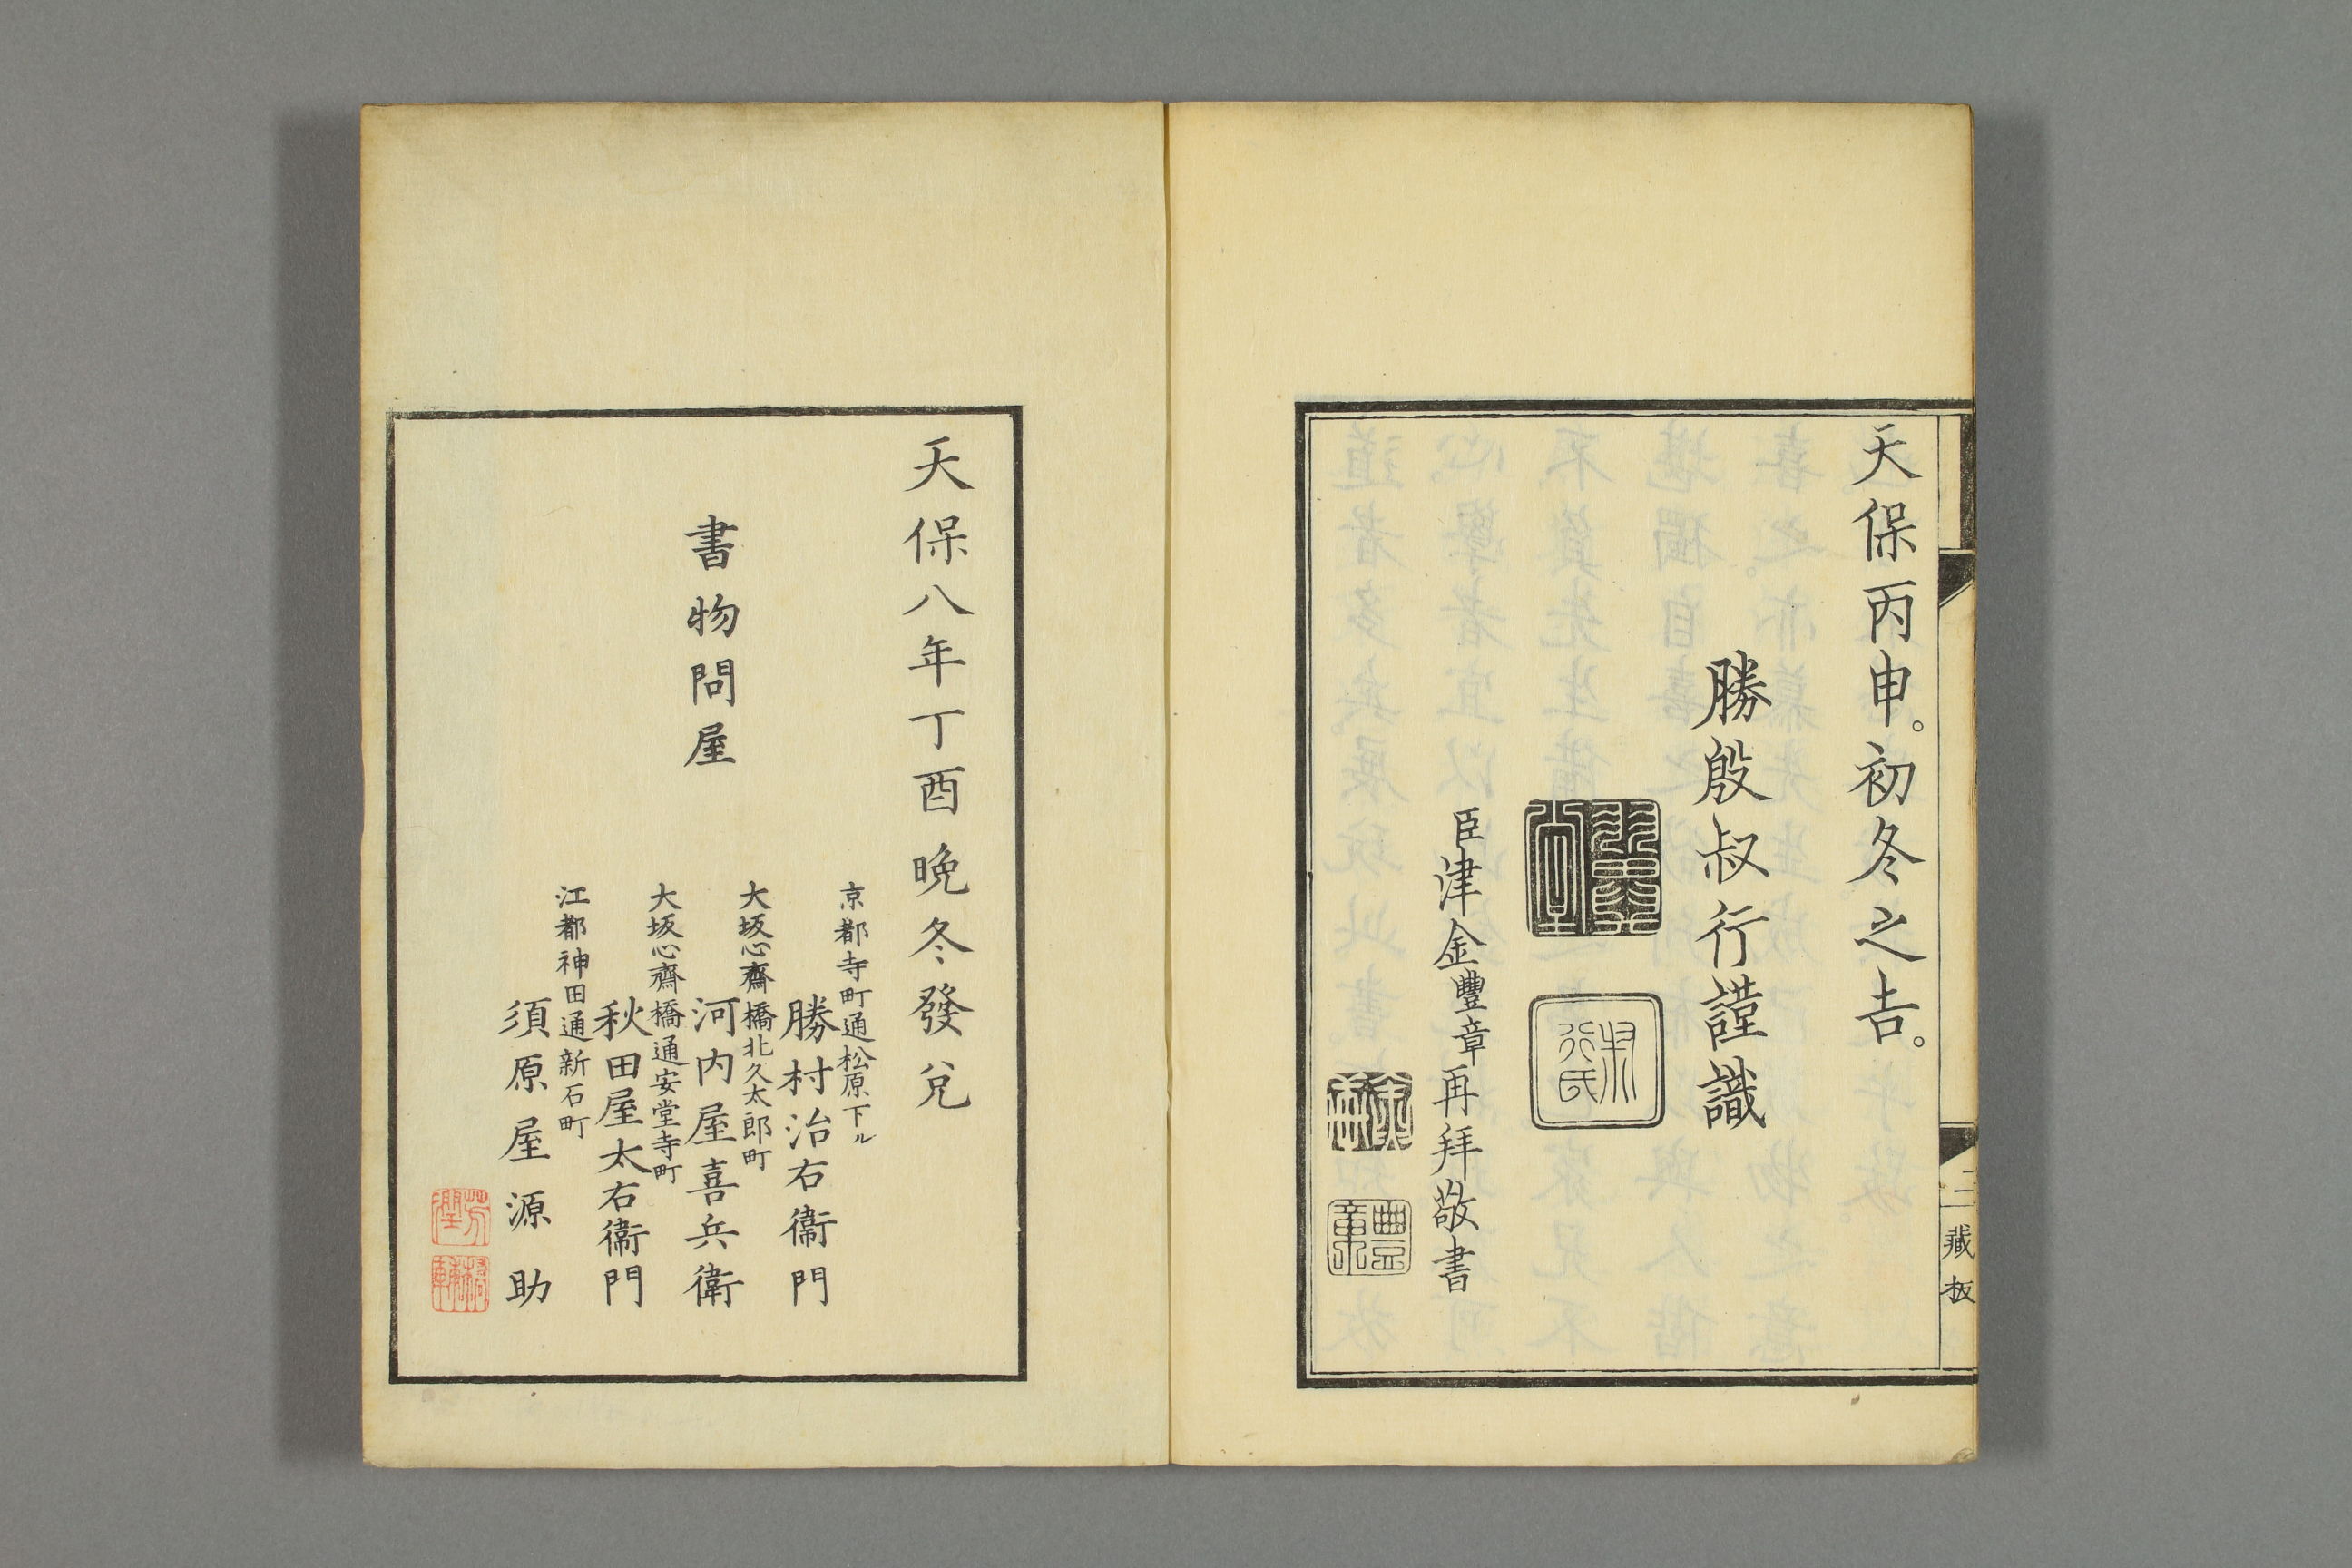 天保丙申。初冬之吉。
勝殷叔行謹識
臣津金豐章再拜敬書
豐章
二
藏板
天保八年丁酉晩冬發兌
書物問屋
京都寺町通松原下ル
勝村治右衞門
大坂心齋橋北久太郎町
河内屋喜兵衛
大坂心齋橋通安堂寺町
秋田屋太右衞門
江都神田通新石町
須原屋源助